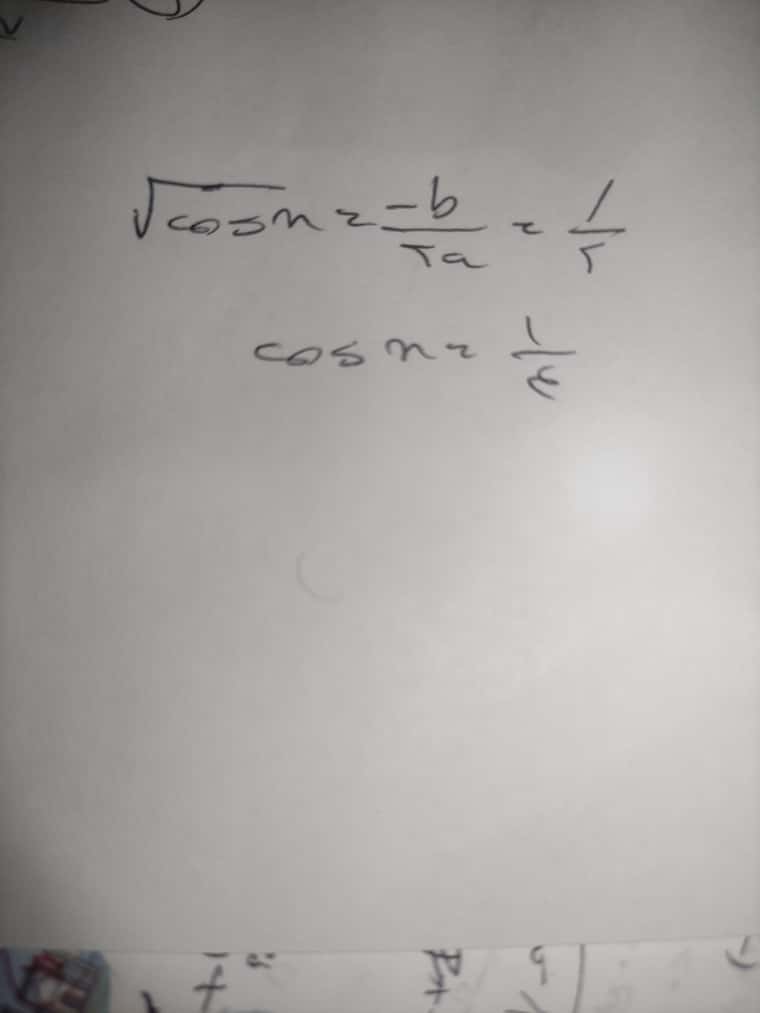 √cosx = -b/۲a = 1/۲
cosx = 1/۴